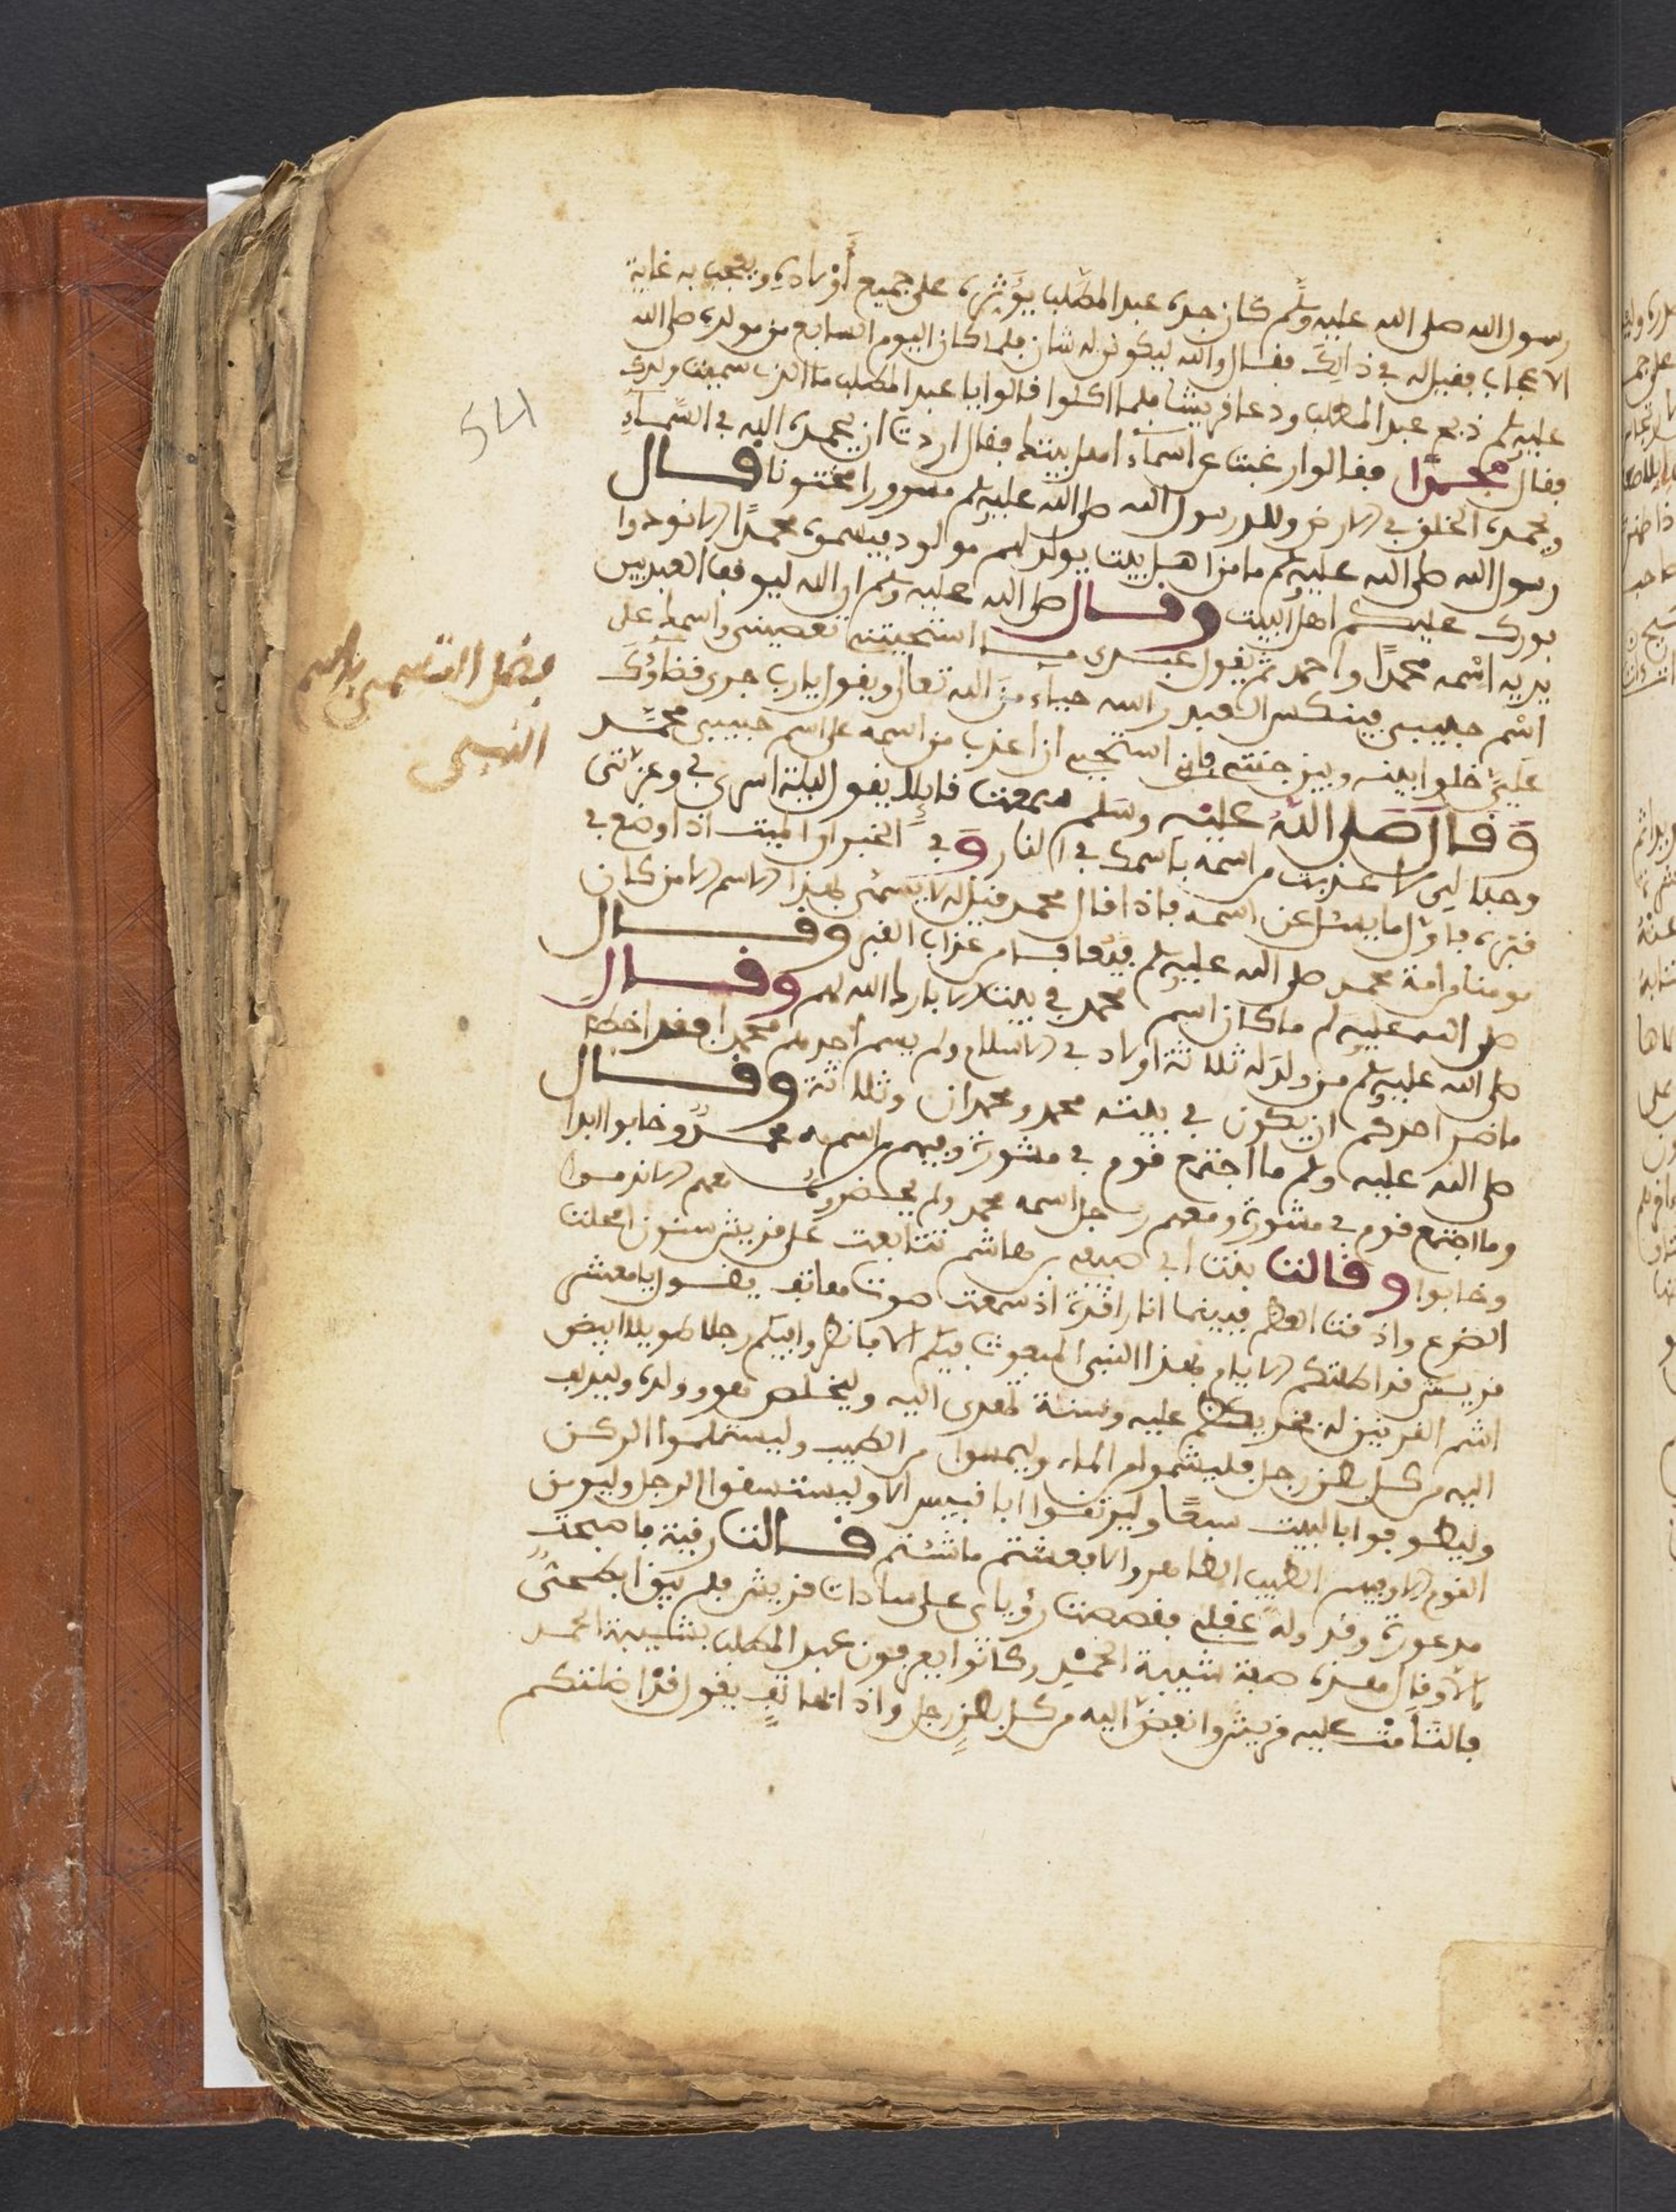 رسول الله صلى الله عليه وسلم كان جده عبد المطلب يؤثره على جميع أولاده ويعجب به غاية
الاعجاب فقيل له في ذالك فقال والله ليكونن له شان فلما كان اليوم السابع من مولده صلى الله
عليه وسلم ذبح عبد المطلب ودعا قريشا فلما اكلوا قالوا يا عبد المطلب ما الذي سميت ولدك
فقال محمدا فقالوا رغبت عن اسماء اهل بيتك فقال اردت ان يحمده الله في السماء
ويحمده الخلق في الارض وولد رسول الله صلى الله عليه وسلم مسرورا مختونا قال
رسول الله صلى الله عليه وسلم ما من اهل بيت يولد لهم مولود فيسموه محمدا الا نودوا
بورك عليكم اهل البيت وقال صلى الله عليه وسلم ان الله ليوقف العبد بين
يديه اسمه محمدا واحمد ثم يقول عبدي استحييت تعصيني واسمك على
اسم حبيبي فينكس العبد راسه حياء من الله تعالى ويقول يا رب جرى قضاؤك
علي خلوا بينه وبين جنتي فاني استحيي ان اعذب من اسمه على اسم حبيبي محمد
وقال صلى الله عليه وسلم سمعت قائلا يقول ليلة اسري بي وعزتي
وجلالي لا عذبت من اسمه باسمك في النار وفي الخبر ان الميت اذا وضع في
قبره فاول ما يسئل عن اسمه فاذا قال محمد قيل له لا يسمى بهذا الاسم الا من كان
مومنا من امة محمد صلى الله عليه وسلم من عذاب القبر وقال
صلى الله عليه وسلم ما كان اسم محمد في بيت الا بارك الله لهم وقال
صلى الله عليه وسلم من ولد له ثلاثة اولاد في الاسلام ولم يسم احد منهم محمدا فقد اخطا
ما ضر احدكم ان يكون في بيته محمد ومحمدان وثلاثة وقال
صلى الله عليه وسلم ما اجتمع قوم في مشورة وفيهم من اسمه محمد وخابوا ابدا
وما اجتمع قوم في مشورة ومعهم رجل اسمه محمد ولم يحضروه معهم الا ندموا
وخابوا وقالت بنت ابي صيفي بن هاشم تتابعت على قريش سنون امحلت
الضرع واذقت العظم فبينما انا راقدة اذ سمعت صوت هاتف يقول يا معشر
قريش قد اظلتكم الايام بهذا النبي المبعوث فيكم الا فانظروا فيكم رجلا طويلا ابيض
اشم العرنين له فخر يكظم عليه وسنة تهدى اليه وليخلص هو وولده وليدلف
اليه من كل بطن رجل فليشموا من الماء وليمسوا من الطيب وليستلموا الركن
وليطوفوا بالبيت سبعا وليرتقوا ابا قبيس الا وليستسقوا الرجل وليومن
القوم الا وفيهم الطيب الطاهر والا فغثتم ما شئتم قالت رقيقة فاصبحت
مذعورة وقد وله عقلي فقصصت رؤياي على سادات قريش فلم يبق ابطحي
الا وقال هذه صفة شيبة الحمد وكانوا يعرفون عبد المطلب بشيبة الحمد
فالتامت عليه قريش وانقض اليه من كل بطن رجل واذا الهاتف يقول قد اظلتكم
فضل التسمي باسم
النبي
54